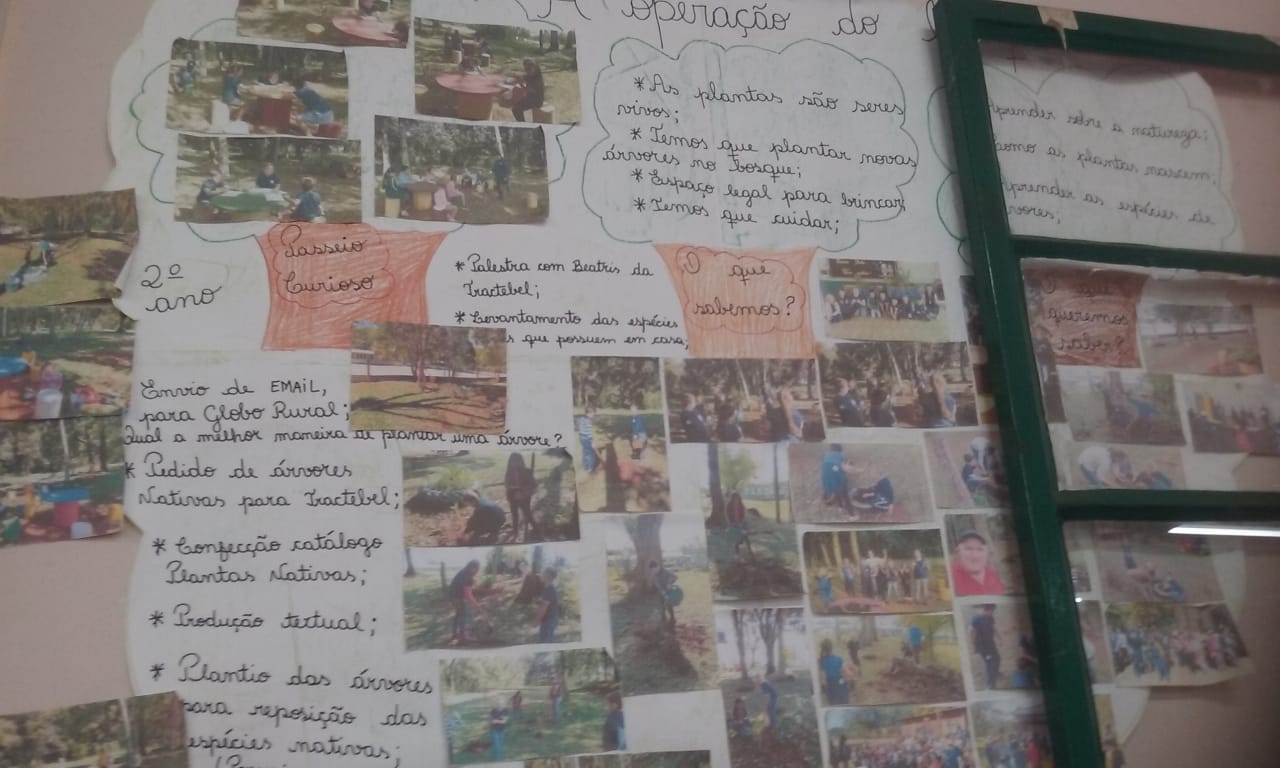 A operação do
* As plantas são seres
vivos;
* Temos que plantar novas
árvores no bosque;
* Espaço legal para brincar;
* Temos que cuidar;
prender sobre a natureza;
como as plantas nascem;
prender as espécies de
vores;
Passeio
Curioso
2º
ano
* Palestra com Beatris da
Tractebel;
* Levantamento das espécies
s que possuem em casa;
O que
sabemos?
O que
queremos
saber?
Envio de EMAiL,
para Globo Rural;
Qual a melhor maneira de plantar uma árvore?
* Pedido de árvores
Nativas para Tractebel;
* Confecção catálogo
Plantas Nativas;
* Produção textual;
* Plantio das árvores
para reposição das
espécies nativas;